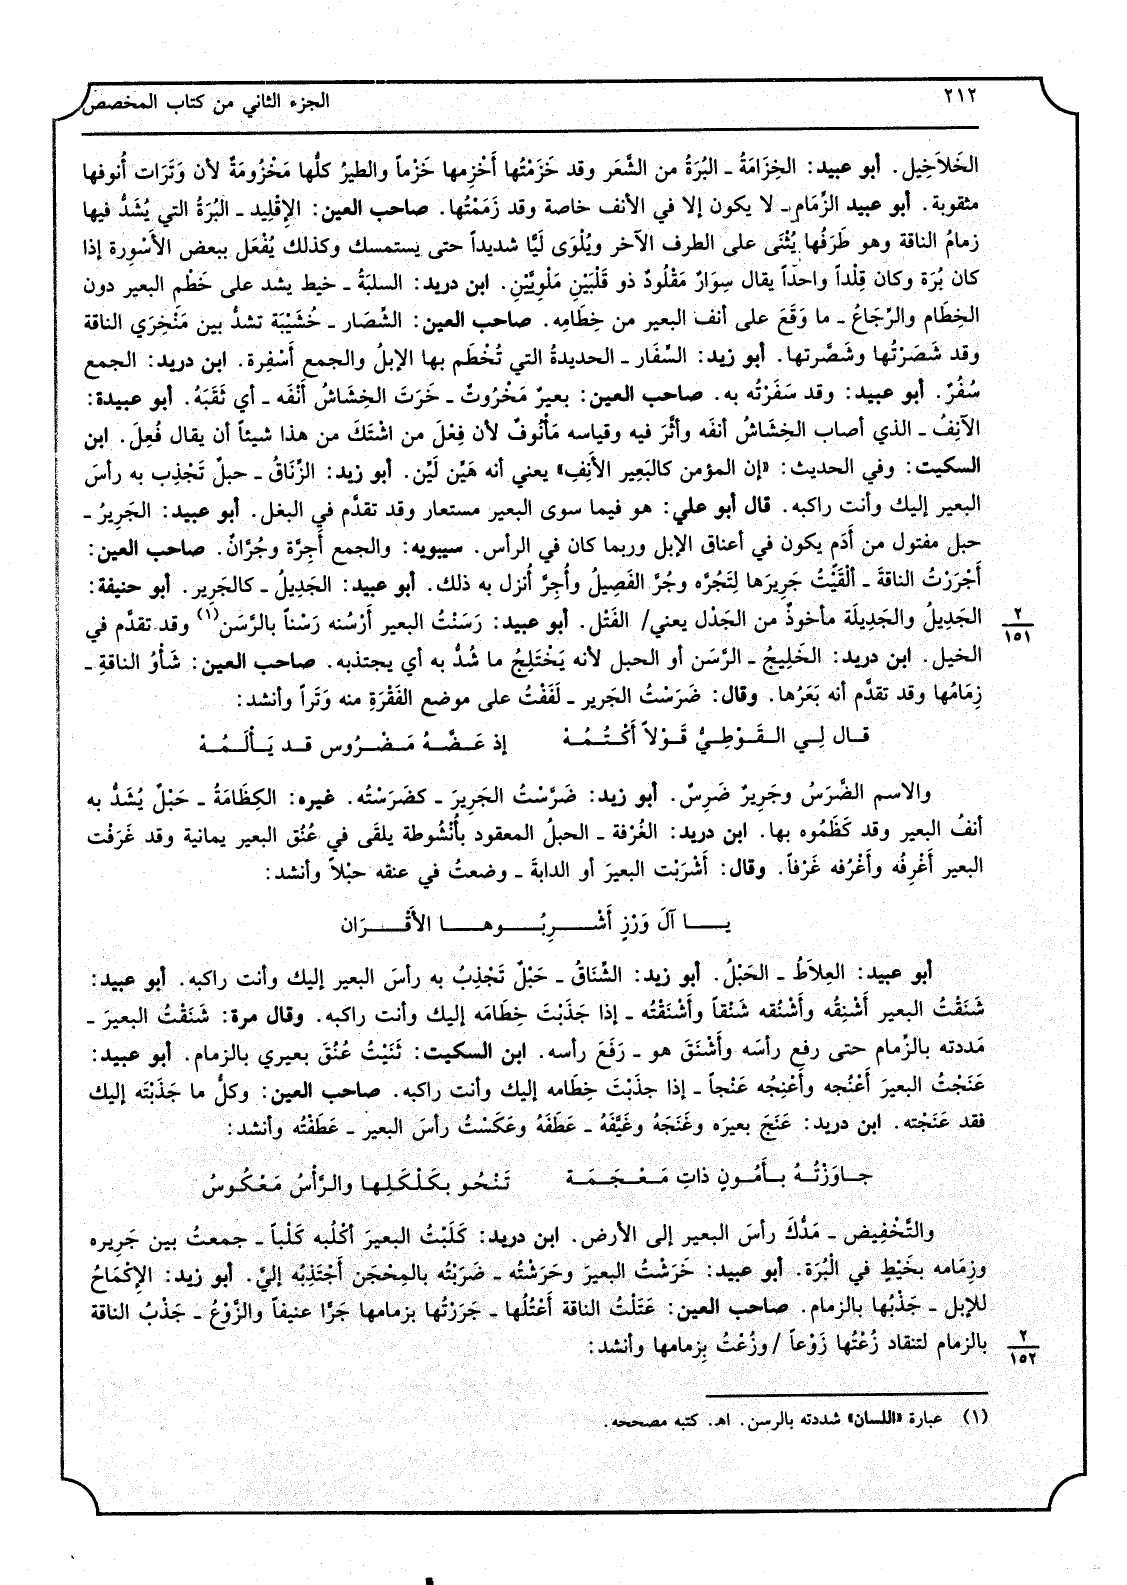 ٢١٢
الجزء الثاني من كتاب المخصص
الخَلاَخِيل. أبو عبيد: الخِزَامَةُ ـ البُرَةُ من الشَّعَر وقد خَزَمْتُها أخْزِمها خَزْماً والطيرُ كلُّها مَخْزُومَةٌ لأن وَتَرَات أُنوفها
مثقوبة. أبو عبيد الزِّمَام ـ لا يكون إلا في الأنف خاصة وقد زَمَمْتُها. صاحب العين: الإقْلِيد ـ البُرَةُ التي يُشَدُّ فيها
زمامُ الناقة وهو طَرَفُها يُثْنَى على الطرف الآخر ويُلْوَى لَيًّا شديداً حتى يستمسك وكذلك يُفْعَل ببعض الأَسْوِرة إذا
كان بُرَة وكان قِلْداً واحداً يقال سِوَارٌ مَقْلُودٌ ذو قَلْبَيْنِ مَلْوِيَّيْنِ. ابن دريد: السلبَةُ ـ خيط يشد على خَطْم البعير دون
الخِطَام والرِّجَاعُ ـ ما وَقَعَ على أنف البعير من خِطَامِه. صاحب العين: الشِّصَار ـ خُشَيْبَة تشدُّ بين مَنْخِرَي الناقة
وقد شَصَرْتُها وشَصَّرتها. أبو زيد: السِّفَار ـ الحديدةُ التي تُخْطَم بها الإبلُ والجمع أَسْفِرة. ابن دريد: الجمع
سُفُرٌ. أبو عبيد: وقد سَفَرْتُه به. صاحب العين: بعيرٌ مَخْرُوتٌ ـ خَرَتَ الخِشَاشُ أَنْفَه ـ أي ثَقَبَهُ. أبو عبيدة:
الآنِفُ ـ الذي أصاب الخِشَاشُ أنفَه وأثَّرَ فيه وقياسه مَأْنُوفٌ لأن فِعْلَ من اشْتَكَ من هذا شيئاً أن يقال فُعِلَ. ابن
السكيت: وفي الحديث: «إن المؤمن كالبَعِير الأَنِفِ» يعني أنه هَيِّن لَيِّن. أبو زيد: الزِّنَاقُ ـ حبلٌ تَجْذِب به رأسَ
البعير إليك وأنت راكبه. قال أبو علي: هو فيما سوى البعير مستعار وقد تقدَّم في البغل. أبو عبيد: الجَرِيرُ ـ
حبل مفتول من أَدَم يكون في أعناق الإبل وربما كان في الرأس. سيبويه: والجمع أَجِرَّة وجُرَّانٌ. صاحب العين:
أَجْرَرْتُ الناقةَ ـ ألْقَيْتُ جَرِيرَها لِتَجُرَّه وجُرَّ الفَصِيلُ وأُجِرَّ أُنزل به ذلك. أبو عبيد: الجَدِيلُ ـ كالجَرِير. أبو حنيفة:
الجَدِيلُ والجَدِيلَة مأخوذٌ من الجَدْل يعني/ الفَتْل. أبو عبيد: رَسَنْتُ البعير أَرْسُنه رَسْناً بالرَّسَن(١) وقد تقدَّم في
٢
١٥١
الخيل. ابن دريد: الخَلِيجُ ـ الرَّسَن أو الحبل لأنه يَخْتَلِجُ ما شُدَّ به أي يجتذبه. صاحب العين: شَأْوُ الناقةِ ـ
زِمَامُها وقد تقدَّم أنه بَعَرُها. وقال: ضَرَسْتُ الجَرير ـ لَفَفْتُ على موضع الفَقْرَةِ منه وَتَراً وأنشد:
قـال لِـي الـقَـوْطِـيُّ قَـوْلاً أَكْـتُـمُـهْ إذ عَـضَّـهُ مَـضْـرُوس قـد يَـأْلَـمُـهْ
والاسم الضَّرَسُ وجَرِيرٌ ضَرِسٌ. أبو زيد: ضَرَّسْتُ الجَرِيرَ ـ كضَرَسْتُه. غيره: الكِظَامَةُ ـ حَبْلٌ يُشَدُّ به
أنفُ البعير وقد كَظَمُوه بها. ابن دريد: الغُرْفة ـ الحبلُ المعقود بأُنْشُوطة يلقَى في عُنُق البعير يمانية وقد غَرَفْت
البعير أَغْرِفُه وأَغْرُفه غَرْفاً. وقال: أَشْرَبْت البعيرَ أو الدابةَ ـ وضعتُ في عنقه حبْلاً وأنشد:
يـــا آلَ وَزْرٍ أَشْـــرِبُـــوهـــا الأَقْـــرَان
أبو عبيد: العِلاَطُ ـ الحَبْلُ. أبو زيد: الشِّنَاقُ ـ حَبْلٌ تَجْذِبُ به رأسَ البعير إليك وأنت راكبه. أبو عبيد:
شَنَقْتُ البعير أَشْنِقُه وأَشْنُقه شَنْقاً وأَشْنَقْتُه ـ إذا جَذَبْتَ خِطَامَه إليك وأنت راكبه. وقال مرة: شَنَقْتُ البعيرَ ـ
مَددته بالزِّمام حتى رفع رأسَه وأَشْنَقَ هو ـ رَفَعَ رأسه. ابن السكيت: ثَنَيْتُ عُنُقَ بعيري بالزمام. أبو عبيد:
عَنَجْتُ البعيرَ أَعْنُجه وأَعْنِجُه عَنْجاً ـ إذا جذَبْتَ خِطَامه إليك وأنت راكبه. صاحب العين: وكلُّ ما جَذَبْتَه إليك
فقد عَنَجْته. ابن دريد: عَنَجَ بعيرَه وغَنَجَهُ وغَيَّفَهُ ـ عَطَفَهُ وعَكَسْتُ رأسَ البعير ـ عَطَفْتُه وأنشد:
جـاوَزْتُـهُ بـأَمُـونٍ ذاتِ مَـعْـجَـمَـة تَـنْحُـو بـكَـلْكَـلِـها والـرَّأْسُ مَـعْكُـوسُ
والتَّخْفِيض ـ مَدُّكَ رأسَ البعير إلى الأرض. ابن دريد: كَلَبْتُ البعيرَ أكْلُبه كَلْباً ـ جمعتُ بين جَرِيره
وزِمَامه بخَيْطٍ في البُرَة. أبو عبيد: خَرَشْتُ البعيرَ وحَرَشْتُه ـ ضَرَبْتُه بالمِحْجَن أَجْتَذِبُه إليَّ. أبو زيد: الإكْمَاحُ
للإبل ـ جَذْبُها بالزمام. صاحب العين: عَتَلْتُ الناقة أَعْتُلُها ـ جَرَرْتُها بزمامها جَرًّا عنيفاً والزَّوْعُ ـ جَذْبُ الناقة
بالزمام لتنقاد زُعْتُها زَوْعاً /وزُعْتُ بِزمامها وأنشد:
٢
١٥٢
(١) عبارة «اللسان» شددته بالرسن. اهـ. كتبه مصححه.